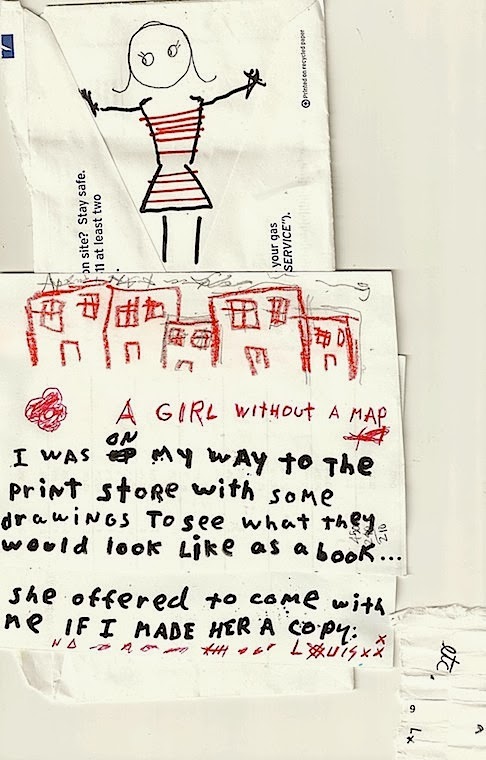 Printed on recycled paper
on site? Stay safe.
11 at least two
your gas
SERVICE").
A GIRL WITHOUT A MAP
I WAS ON MY WAY TO The
print store with some
drawings To see what they
would look Like as a book...
she offered to come with
me IF I MADE HER A COPY:
LOUIS XX
x
etc.
6
x7